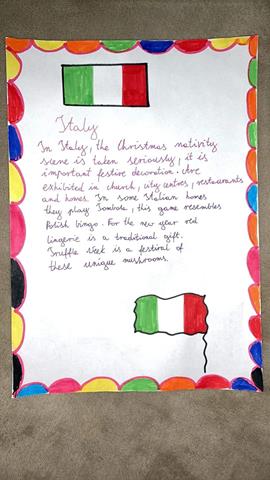 Italy
In Italy, the Christmas nativity
scene is taken seriously, it is
important festive decoration. Are
exhibited in church, city centres, restaurants
and homes. In some Italian homes
they play Tombola, this game resembles
Polish bingo. For the new year red
lingerie is a traditional gift.
Truffle week is a festival of
these unique mushrooms.